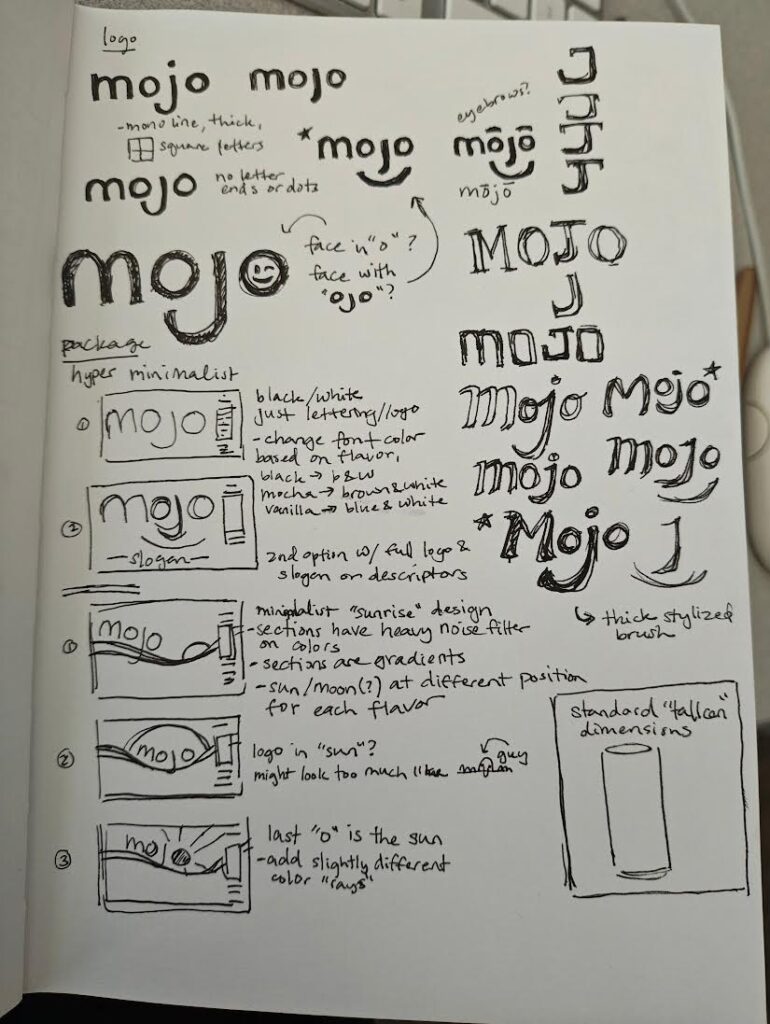 logo
mojo mojo
- mono line, thick,
square letters
mojo no letter
ends or dots
* mojo
eyebrows?
mōjō
mōjō
J
J
J
J
mojo
face in "o"?
face with
"ojo"?
MOJO
J
MOJO
mojo Mojo *
mojo Mojo
* Mojo J
↳ thick stylized
brush
package
hyper minimalist
① mojo
black/white
just lettering/logo
- change font color
based on flavor,
black → b&w
mocha → brown & white
vanilla → blue & white
② MOJO
—slogan—
2nd option w/ full logo &
slogan or descriptors
① mojo
minimalist "sunrise" design
- sections have heavy noise filter
on colors
- sections are gradients
- sun/moon(?) at different position
for each flavor
② mojo
logo in "sun"?
might look too much like guy
③ mojo
last "o" is the sun
- add slightly different
color "rays"
standard "tallcan"
dimensions